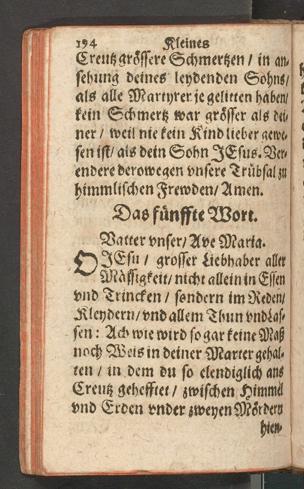 194 Kleines
Creutz grössere Schmertzen / in an-
sehung deines leydenden Sohns/
als alle Martyrer je gelitten haben/
kein Schmertz war grösser als dei-
ner / weil nie kein Kind lieber gewe-
sen ist/ als dein Sohn JEsus. Ver-
endere derowegen vnsere Trübsal zu
himmlischen Frewden / Amen.
Das fünffte Wort.
Vatter vnser/ Ave Maria.
O JEsu / grosser Liebhaber aller
Mässigkeit/ nicht allein in Essen
vnd Trincken / sondern im Reden/
Kleydern/ vnd allem Thun vnd Las-
sen: Ach wie wird so gar keine Maß
noch Weis in deiner Marter gehal-
ten / in dem du so elendiglich ans
Creutz gehefftet / zwischen Himmel
vnd Erden vnder zweyen Mördern
hien-